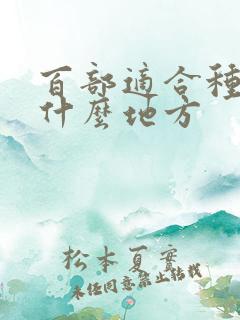 百部適合種
什麼地方
松本夏實
未經同意禁止轉載